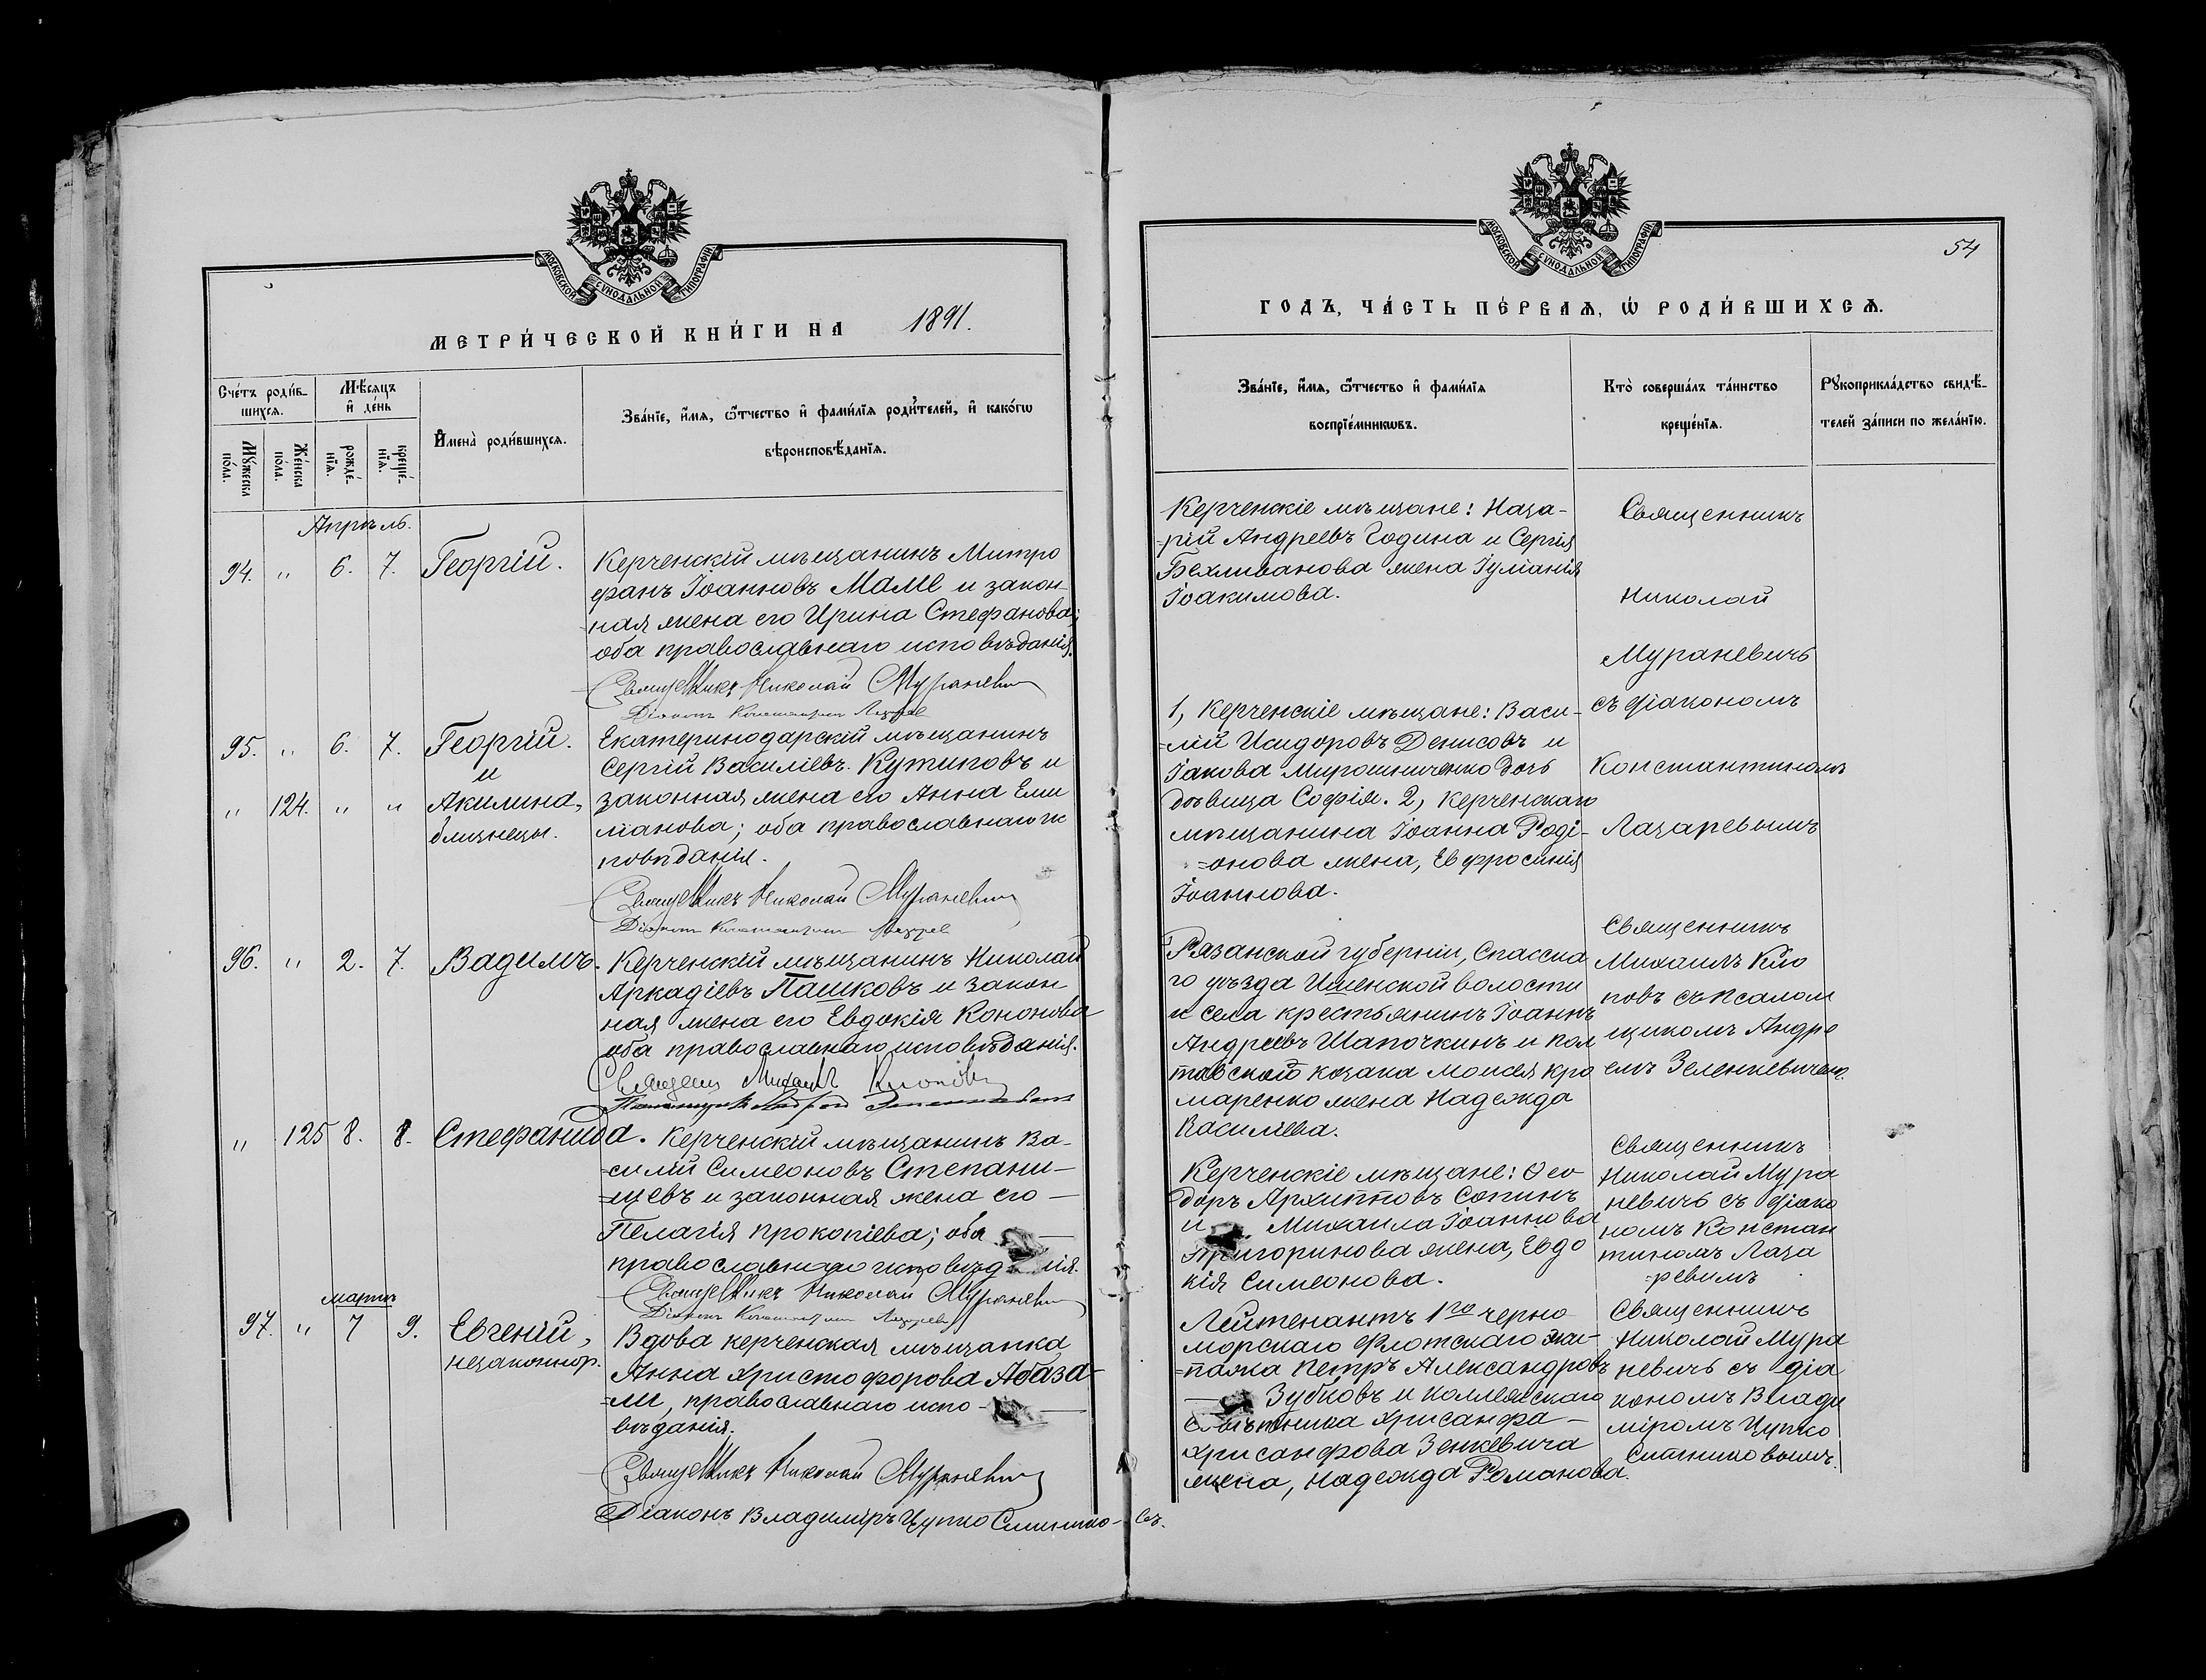 МОСКОВСКОЙ СѴНОДАЛЬНОЙ ТИПОГРАФІИ
МЕТРИ́ЧЕСКОЙ КНИ́ГИ НА 1891.
Сче́тъ роди́в-
шихсѧ.
Мѣ́сяцъ
и҆ де́нь
Мꙋ́жеска
по́ла.
Же́нска
по́ла.
рожде́-
нїѧ.
креще́-
нїѧ.
И҆мена̀ роди́вшихсѧ.
Зва́нїе, и҆́мѧ, ѻ҆́тчество и҆ фами́лїѧ роди́телей, и҆ како́гѡ
вѣроисповѣ́данїѧ.
Апрѣль.
94. " 6. 7. Георгій.
Керченскій мѣщанинъ Митро
фанъ Іоанновъ Маме и закон-
ная жена его Ирина Стефанова;
оба православнаго исповѣданія.
Священникъ Николай Мураневич
Діаконъ Константинъ Лазарев
95. " 6. 7. Георгій.
и
" 124. " " Акилина,
близнецы.
Екатеринодарскій мѣщанинъ
Сергій Василіевъ Кутиповъ и
законная жена его Анна Еми
ліанова; оба православнаго ис
повѣданія.
Священникъ Николай Мураневич
Діаконъ Константинъ Лазарев
96. " 2. 7. Вадимъ.
Керченскій мѣщанинъ Николай
Аркадіевъ Пашковъ и закон
ная жена его Евдокія Кононова
оба православнаго исповѣданія.
Священник Михаилъ Клопов
" 125 8. 8. Стефанида.
Керченскій мѣщанинъ Ва-
=силій Симеоновъ Степани-
=щевъ и законная жена его —
Пелагія Прокопіева; оба —
православнаго исповѣданія.
Священникъ Николай Мураневич
Діаконъ Константинъ Лазарев
марта
97. " 7 9. Евгеній,
незаконнор.
Вдова керченская мѣщанка
Анна Христофорова Абаза-
=ли, православнаго испо-
вѣданія.
Священникъ Николай Мураневич
Діаконъ Владимиръ Цупко Ситнико-въ.
МОСКОВСКОЙ СѴНОДАЛЬНОЙ ТИПОГРАФІИ
54
ГОДЪ, ЧА́СТЬ ПЕ́РВАѦ, Ѽ РОДИ́ВШИХСѦ.
Зва́нїе, и҆́мѧ, ѻ҆́тчество и҆ фами́лїѧ
воспрїе́мникѡвъ.
Кто̀ соверша́лъ та́инство
креще́нїѧ.
Рꙋкоприкла́дство свидѣ́-
телей за́писи по жела́нїю.
Керченскіе мѣщане: Наза-
=рій Андреевъ Година и Сергія
Бехливанова жена Іуліанія
Іоакимова.
Священникъ
Николай
Мураневичъ
съ діакономъ
Константиномъ
Лазаревымъ
1, Керченскіе мѣщане: Васи-
=лій Исидоровъ Денисовъ и
Іакова Мирошниченко дочь
дѣвица Софія. 2, Керченскаго
мѣщанина Іоанна Роді-
=онова жена, Евфросинія
Іоаннова.
Рязанской губерніи, Спасска
го уѣзда Ижевской волости
и села крестьянинъ Іоаннъ
Андреевъ Шапочкинъ и Пол
тавской козака Моисея Кро
маренко жена Надежда
Василіева.
Священникъ
Михаилъ Кло
повъ съ псалом
щикомъ Андре
емъ Зеленкевичемъ.
Керченскіе мѣщане: Ѳео
доръ Архипповъ Сопинъ
и Михаила Іоаннова
Григоринова жена, Евдо
кія Симеонова.
Священникъ
Николай Мура
невичъ съ діако
номъ Констан
тиномъ Лаза
=ревымъ
Лейтенантъ 1го черно
морскаго флотскаго эки-
=пажа Петръ Александровъ
Зубковъ и коллежскаго
совѣтника Хрисанфа —
Хрисанфова Зенкевича
жена, Надежда Романова.
Священникъ
Николай Мура
невичъ съ діа
кономъ Влади
міромъ Цупко
Ситниковымъ.